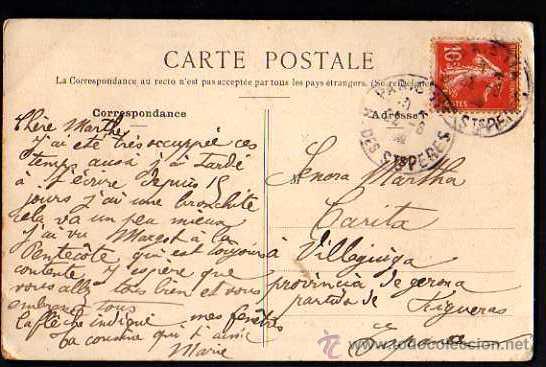 CARTE POSTALE
La Correspondance au recto n'est pas acceptée par tous les pays étrangers. (Se renseigner
Correspondance
Adresse
10c
POSTES
PARIS
R. DES STS PERES
STS PERES
Chère Marthe
j'ai été très occupée ces
temps aussi j'ai tardé
à t'écrire depuis 15
jours j'ai une bronchite
cela va un peu mieux
J'ai vu Margot à la
Pentecôte qui est toujours
contente J'espère que
vous allez tous bien et vous
embrasse tous
La flèche indique mes fenêtres
Ta cousine qui t'aime
Marie
Senora Martha
Carita
à Villeguiga
provincia de gerona
partido de Figueras
España
todocoleccion.net